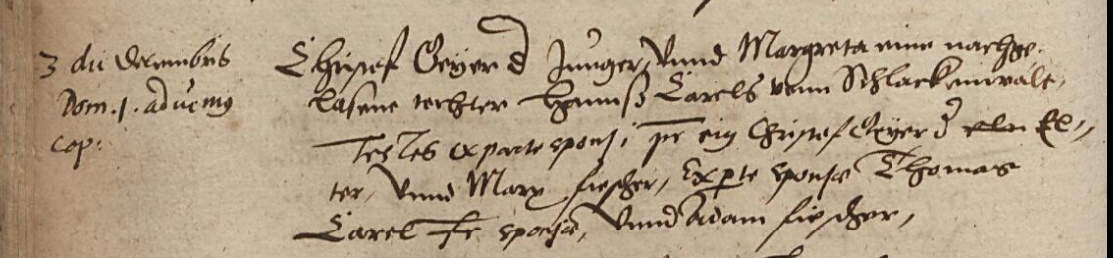 3 die Decembris
Dom. 1. adventus
cop:
Christof Geÿer d Junger, Vnnd Margreta eine nachge-
lasene tochter Hannß Carels vonn Schlackenwalt,
Testes ex parte sponsi, pr eig Christof Geÿer d El-
ter, Vnnd Marx fischer, Ex pte sponsæ Thomas
Carel fr sponsæ, Vnnd Adam fischer,